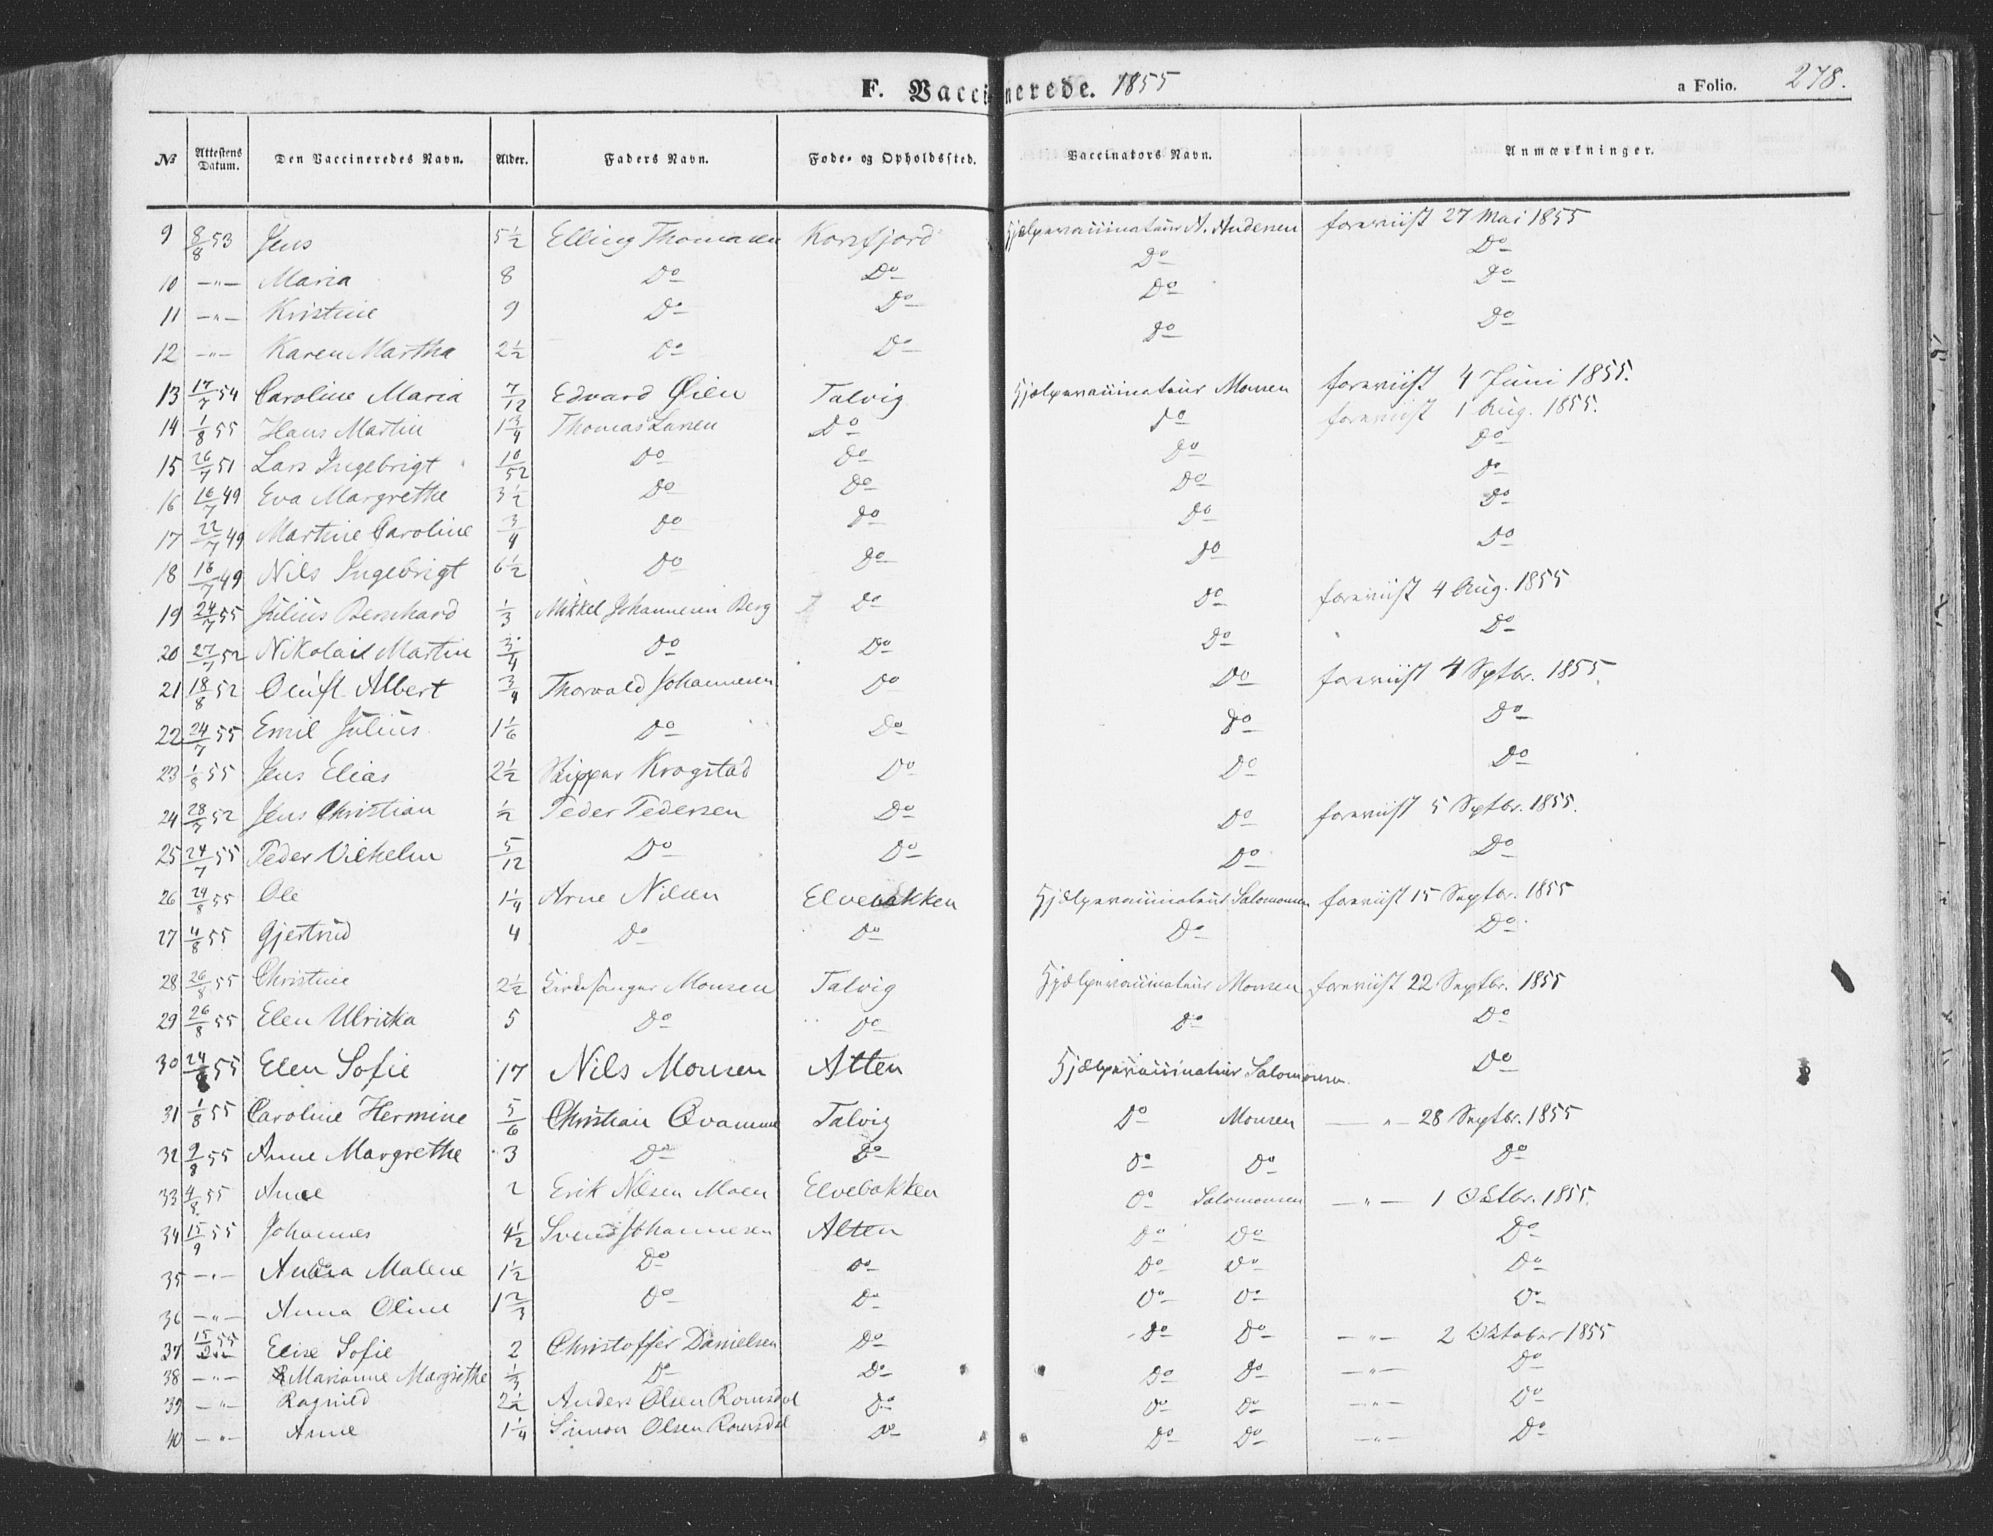 F. Vaccinerede. 1855 a Folio. 278.
№ Attestens Datum. Den Vaccineredes Navn. Alder. Faders Navn. Føde- og Opholdssted. Vaccinators Navn. Anmærkninger.
9 8/8 53 Jens 5 1/2 Elling Thomasen Korsfjord Hjælpevaccinateur A. Andersen foreviist 27 Mai 1855
10 —"— Maria 8 Do Do Do Do
11 —"— Kristine 9 Do Do Do Do
12 —"— Karen Martha 2 1/2 Do Do Do Do
13 17/7 54 Caroline Maria 7/12 Edvard Øien Talvig Hjælpevaccinateur Monsen foreviist 4 Juni 1855.
14 1/8 55 Hans Martin 1 3/4 Thomas Larsen Do Do foreviist 1 Aug. 1855.
15 26/7 51 Lars Ingebrigt 10/52 Do Do Do Do
16 16/7 49 Eva Margrethe 3 1/2 Do Do Do Do
17 22/7 49 Martine Caroline 3/4 Do Do Do Do
18 16/7 49 Nils Ingebrigt 6 1/2 Do Do Do Do
19 24/7 55 Julius Bernhard 1/3 Mikkel Johannesen Berg Do Do foreviist 4 Aug. 1855
20 27/7 52 Nikolai Martin 3/4 Do Do Do Do
21 18/8 52 Oluf Albert 3/4 Thorvald Johannesen Do Do foreviist 4 Sptbr. 1855.
22 24/7 55 Emil Julius 1 1/6 Do Do Do Do
23 1/8 55 Jens Elias 2 1/2 Skipper Krogstad Do Do Do
24 28/7 52 Jens Christian 1/2 Peder Pedersen Do Do foreviist 5 Sptbr. 1855.
25 24/7 55 Peder Vilhelm 5/12 Do Do Do Do
26 24/8 55 Ole 1 1/4 Arne Nilsen Elvebakken Hjælpevaccinateur Salomonsen foreviist 15 Septbr. 1855
27 4/8 55 Gjertrud 4 Do Do Do Do
28 26/8 55 Christine 2 1/2 Kirkesanger Monsen Talvig Hjælpevaccinateur Monsen foreviist 22 Septbr. 1855
29 26/8 55 Elen Ulrikka 5 Do Do Do Do
30 24/8 55 Elen Sofie 17 Nils Monsen Alten Hjælpevaccinateur Salomonsen Do
31 1/8 55 Caroline Hermine 5/6 Christian Qvamme Talvig Do Monsen —"— 28 Septbr. 1855
32 2/8 55 Anne Margrethe 3 Do Do Do Do Do
33 4/8 55 Ane 2 Erik Nilsen Moen Elvebakken Do Salomonsen —"— 1 Oktbr. 1855.
34 15/9 55 Johannes 4 1/2 Svend Johannesen Alten Do Do Do
35 —"— Andrea Malene 1 1/2 Do Do Do Do Do
36 —"— Anna Oline 1 2/3 Do Do Do Do Do
37 15/9 55 Elise Sofie 2 Christoffer Danielsen Do Do Do —"— 2 Oktober 1855
38 —"— Marianne Margrethe 1/3 Do Do Do Do —"— Do
39 —"— Ragnild 2 1/2 Anders Olsen Romsdal Do Do Do —"— Do
40 —"— Anne 1 1/4 Simon Olsen Romsdal Do Do Do —"— Do